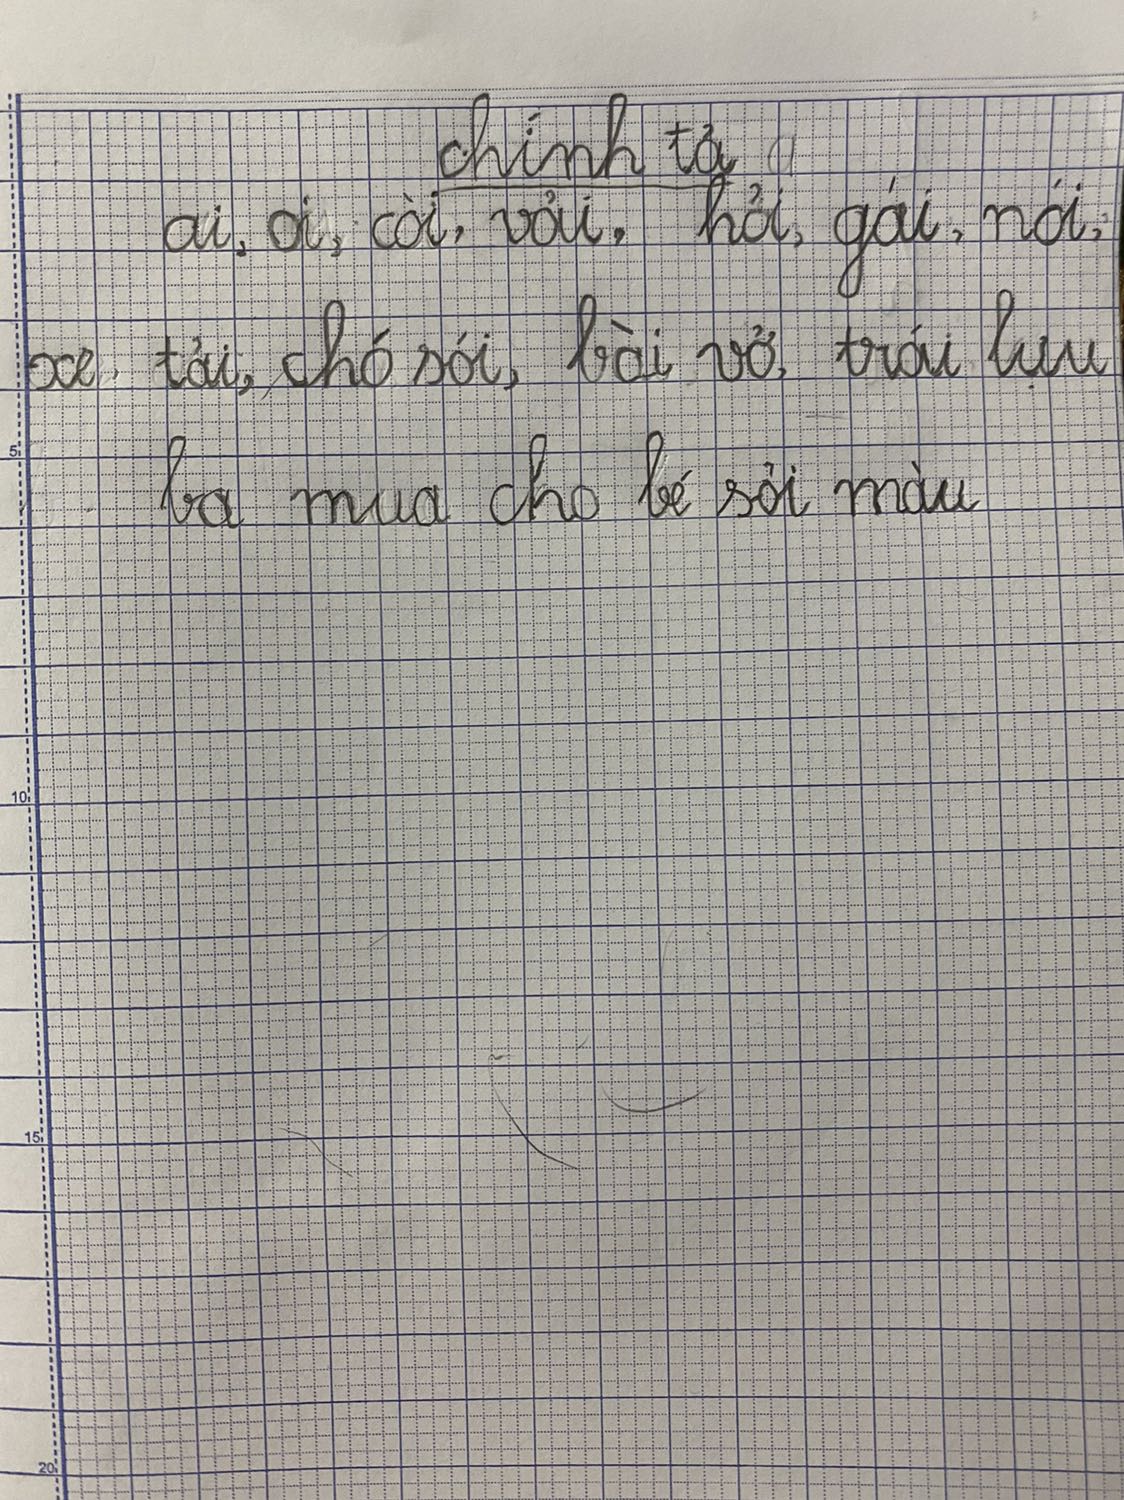 chính tả
ai, oi, còi, vải, hỏi, gái, nói,
xe tải, chó sói, bài vở, trái lựu
ba mua cho bé sỏi màu
5
10
15
20